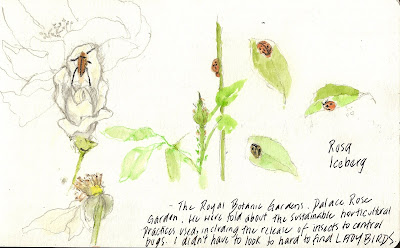 Rosa
Iceberg
- The Royal Botanic Gardens. Palace Rose
Garden. We were told about the sustainable horticultural
practices used, including the release of insects to control
bugs. I didn't have to look to hard to find LADYBIRDS